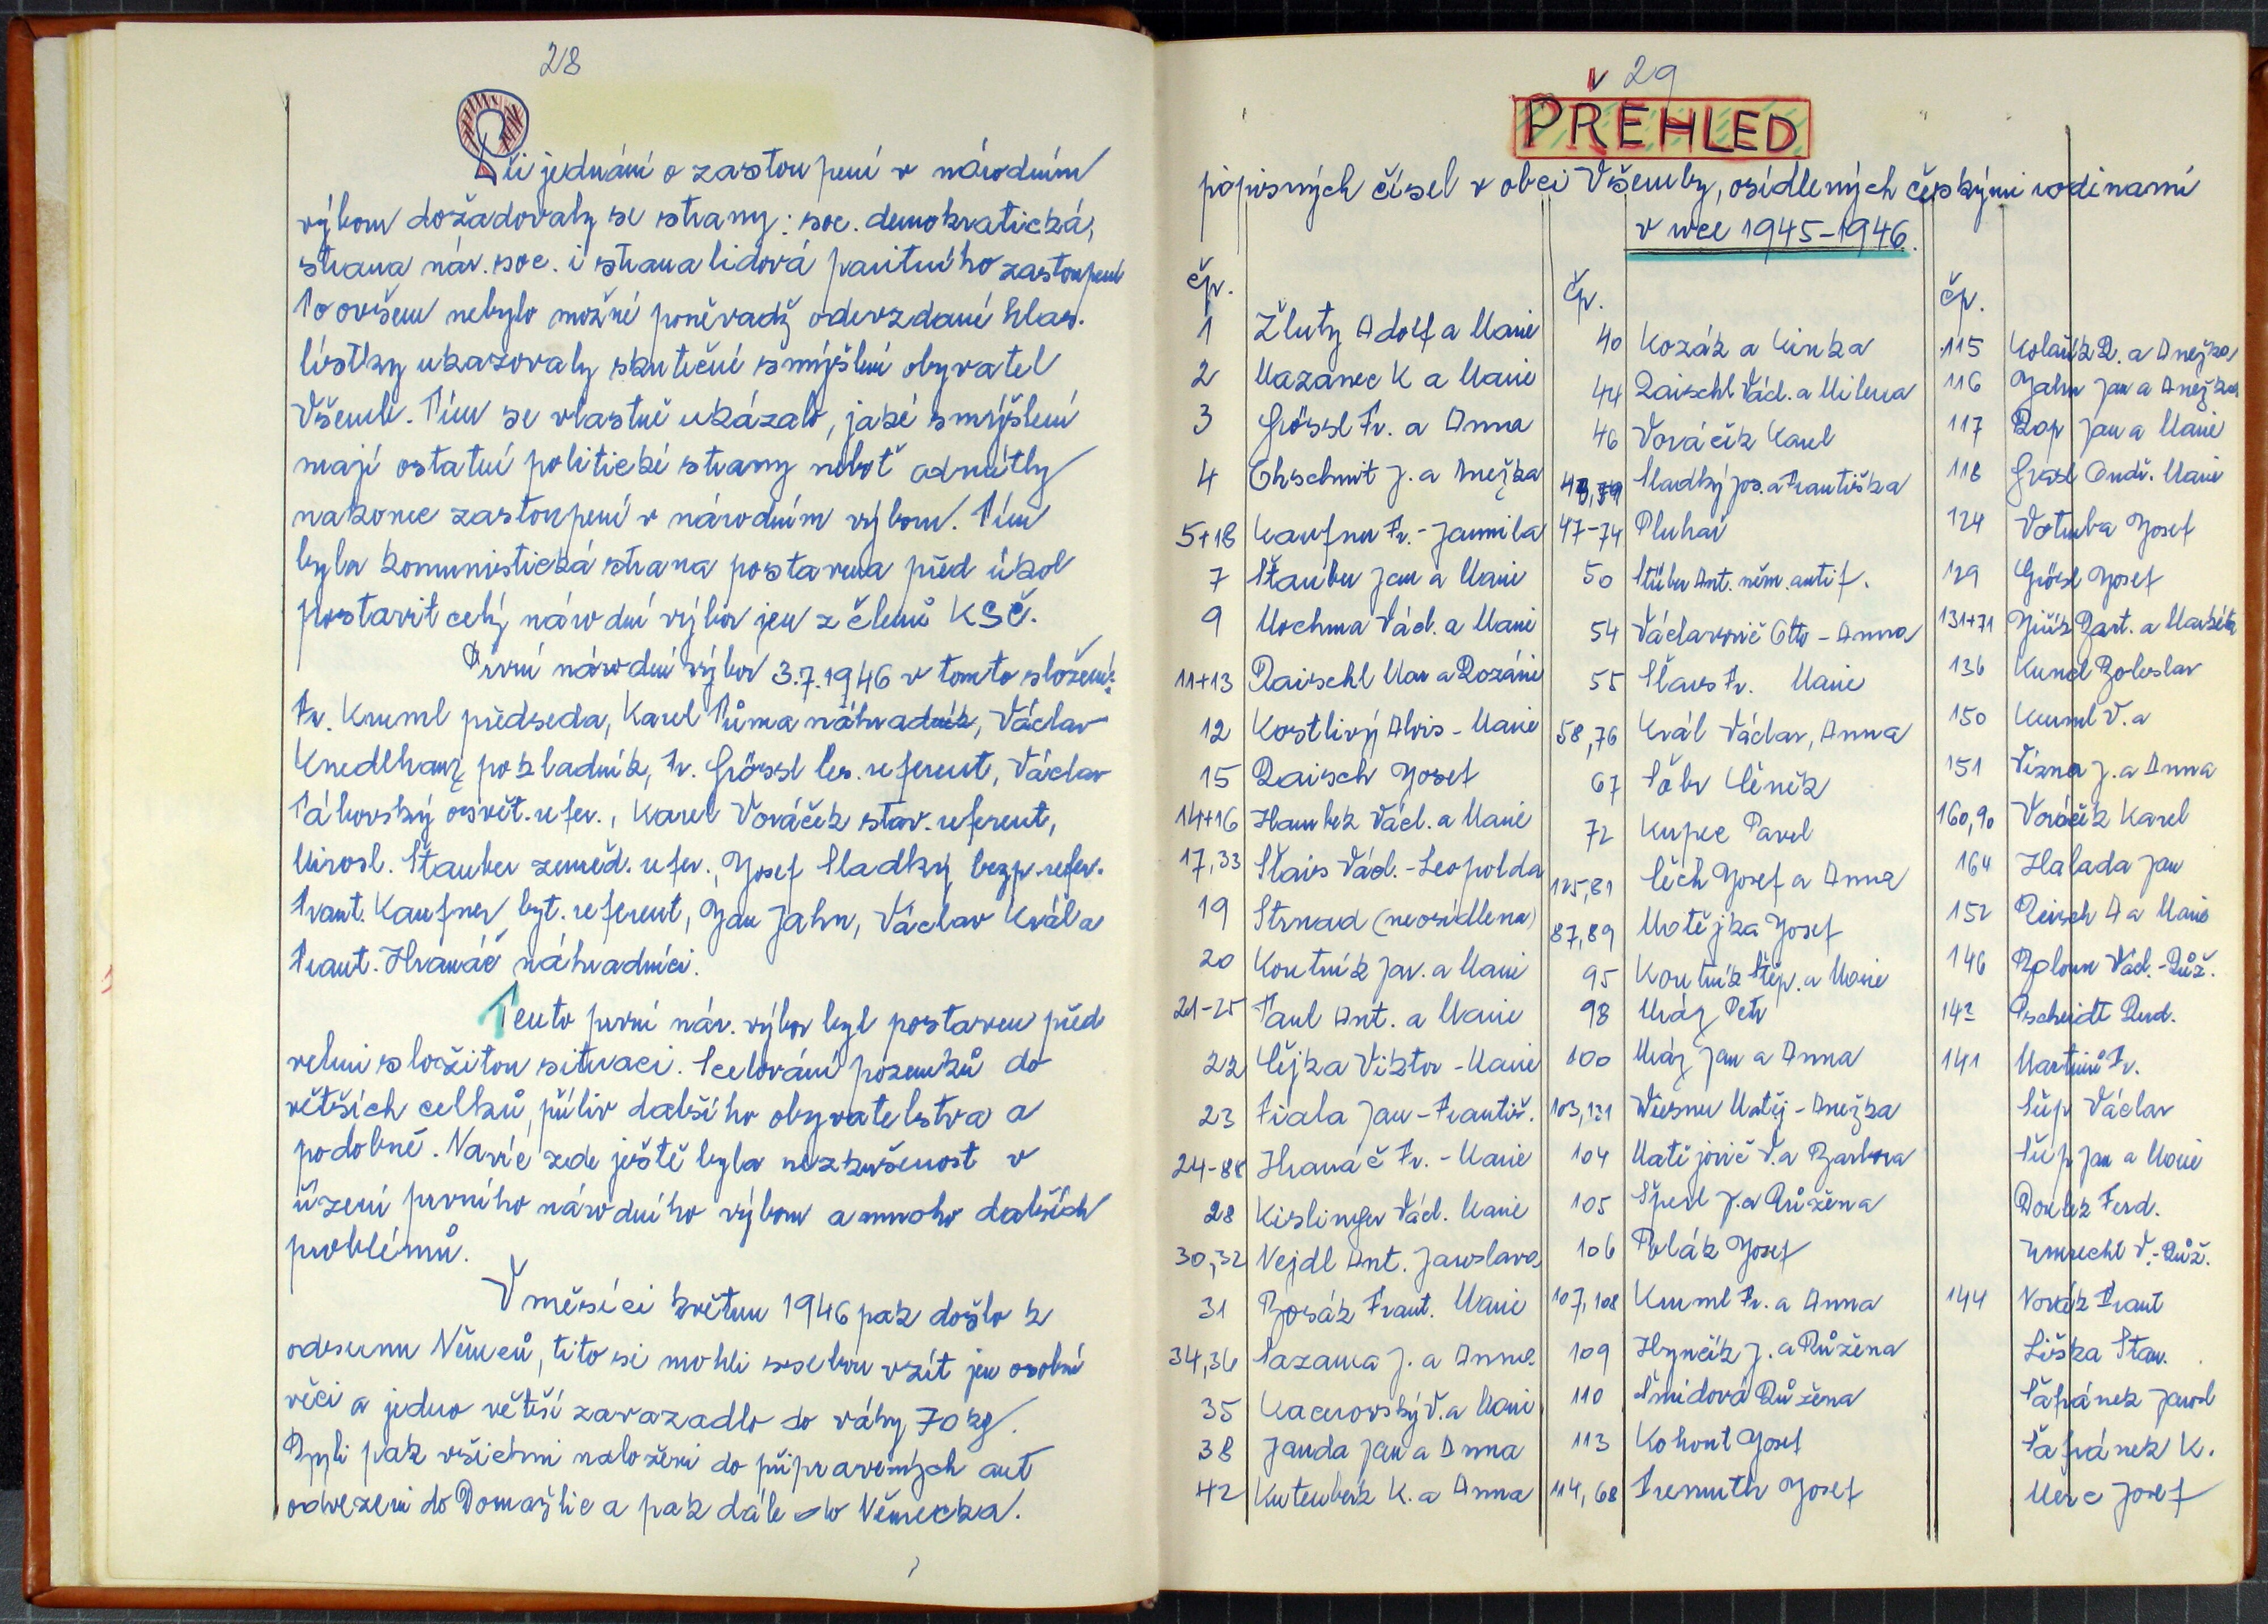 28
Při jednání o zastoupení v národním
výboru dožadovaly se strany: soc. demokratická,
strana nár. soc. i strana lidová paritního zastoupení
To ovšem nebylo možné poněvadž odevzdané hlas.
lístky ukazovaly skutečné smýšlení obyvatel
Všerub. Tím se vlastně ukázalo, jaké smýšlení
mají ostatní politické strany neboť odmítly
nakonec zastoupení v národním výboru. Tím
byla komunistická strana postavena před úkol
postavit celý národní výbor jen z členů KSČ.
První národní výbor 3.7.1946 v tomto složení:
Fr. Kuml předseda, Karel Tůma náhradník, Václav
Knedlhanz pokladník, Fr. Grössl les. referent, Václav
Táhovský osvět. refer., Karel Voráček stav. referent,
Mirosl. Štauber zeměd. refer., Josef Sladký bezp. refer.
Frant. Kaufner byt. referent, Jan Jahn, Václav Král a
Frant. Hranáč náhradníci.
Tento první nár. výbor byl postaven před
velmi složitou situaci. Scelování pozemků do
větších celků, příliv dalšího obyvatelstva a
podobně. Navíc zde ještě byla nezkušenost v
řízení prvního národního výboru a mnoho dalších
problémů.
V měsíci květnu 1946 pak došlo k
odsunu Němců, tito si mohli ssebou vzít jen osobní
věci a jedno větší zavazadlo do váhy 70 kg.
Byli pak všichni naloženi do připravených aut
odvezeni do Domažlic a pak dále do Německa.
29
PŘEHLED
popisných čísel v obci Všeruby, osídlených českými rodinami
v roce 1945-1946.
čp.
1 Žlutý Adolf a Marie
2 Mazanec K a Marie
3 Grössl Fr. a Anna
4 Ohschmit J. a Anežka
5+18 Kaufner Fr. - Jarmila
7 Štauber Jan a Marie
9 Mochna Václ. a Marie
11+13 Raischl Mar a Rozárie
12 Kostlivý Alois - Marie
15 Raisch Josef
14+16 Hambek Václ. a Marie
17,33 Štais Václ. - Leopolda
19 Strnad (neosídlena)
20 Koutník Jar. a Marie
21-25 Paul Ant. a Marie
22 Čejka Viktor - Marie
23 Fiala Jan - Františ.
24-88 Hranáč Fr. - Marie
28 Kislinger Václ. Marie
30,32 Nejdl Ant. Jaroslava
31 Bosák Frant. Marie
34,36 Sazama J. a Anna
35 Kacerovský V. a Marie
38 Janda Jan a Anna
42 K. a Anna
čp.
40 Kozák a Kinka
44 Raischl Václ. a Milena
46 Voráček Karel
Sladký Jos. a Františka
47-74 Pluhař
50 Stüber Ant. něm. antif.
54 Václavovič Otto - Anna
55 Fr. Marie
58,76 Král Václav, Anna
67 Čeněk
72 Kupec Pavel
125,81 Čech Josef a Anna
87,89 Matějka Josef
95 Koutník Štěp. a Marie
98 Mráz Petr
100 Mráz Jan a Anna
103,121 Wiesner Matěj - Anežka
104 Matějovič V. a Barbora
105 Šperl J. a Růžena
106 Polák Josef
107,108 Kuml Fr. a Anna
109 Hynčík J. a Růžena
110 Šmídová Růžena
113 Kohout Josef
114,68 Fremuth Josef
čp.
115 Kolařík R. a Anežka
116 Jahn Jan a Anežka
117 Bop Jan a Marie
118 Ondř. Marie
124 Votruba Josef
129 Grösl Josef
131+71 Jiřík Bart. a Markéta
136 Kuncl Boleslav
150 Kuml V. a
151 Vizner J. a Anna
160,90 Voráček Karel
164 Halada Jan
152 Reisch A a Marie
146 Beloun Václ. - Růž.
142 Pscheidt Rud.
141 Fr.
Šúp Václav
Šúp Jan a Marie
Doubek Ferd.
V. - Růž.
144 Novák Frant
Liška Stan.
Šafránek Jarosl
Šafránek K.
Merc Josef